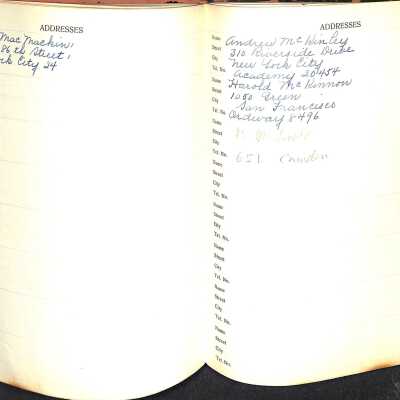 ADDRESSES
Mac Mackin,
86th Street,
rk City 24
ADDRESSES
Name Andrew McKinley
Street 310 Riverside Drive
City New York City
Tel. No. Academy 20454
Name Harold McKinnon
Street 1080 Green
City San Francisco
Tel. No. Ordway 8496
Name
Street
City 651 Camden
Tel. No.
Name
Street
City
Tel. No.
Name
Street
City
Tel. No.
Name
Street
City
Tel. No.
Name
Street
City
Tel. No.
Name
Street
City
Tel. No.